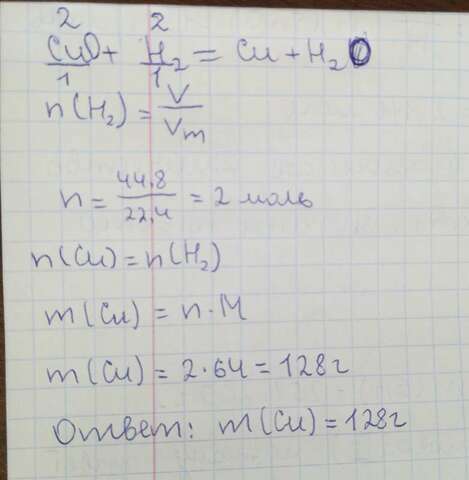 2 2
CuO + H₂ = Cu + H₂O
1 1
n(H₂) = V/Vm
n = 44,8/22,4 = 2 моль
n(Cu) = n(H₂)
m(Cu) = n·M
m(Cu) = 2·64 = 128г
Ответ: m(Cu) = 128г